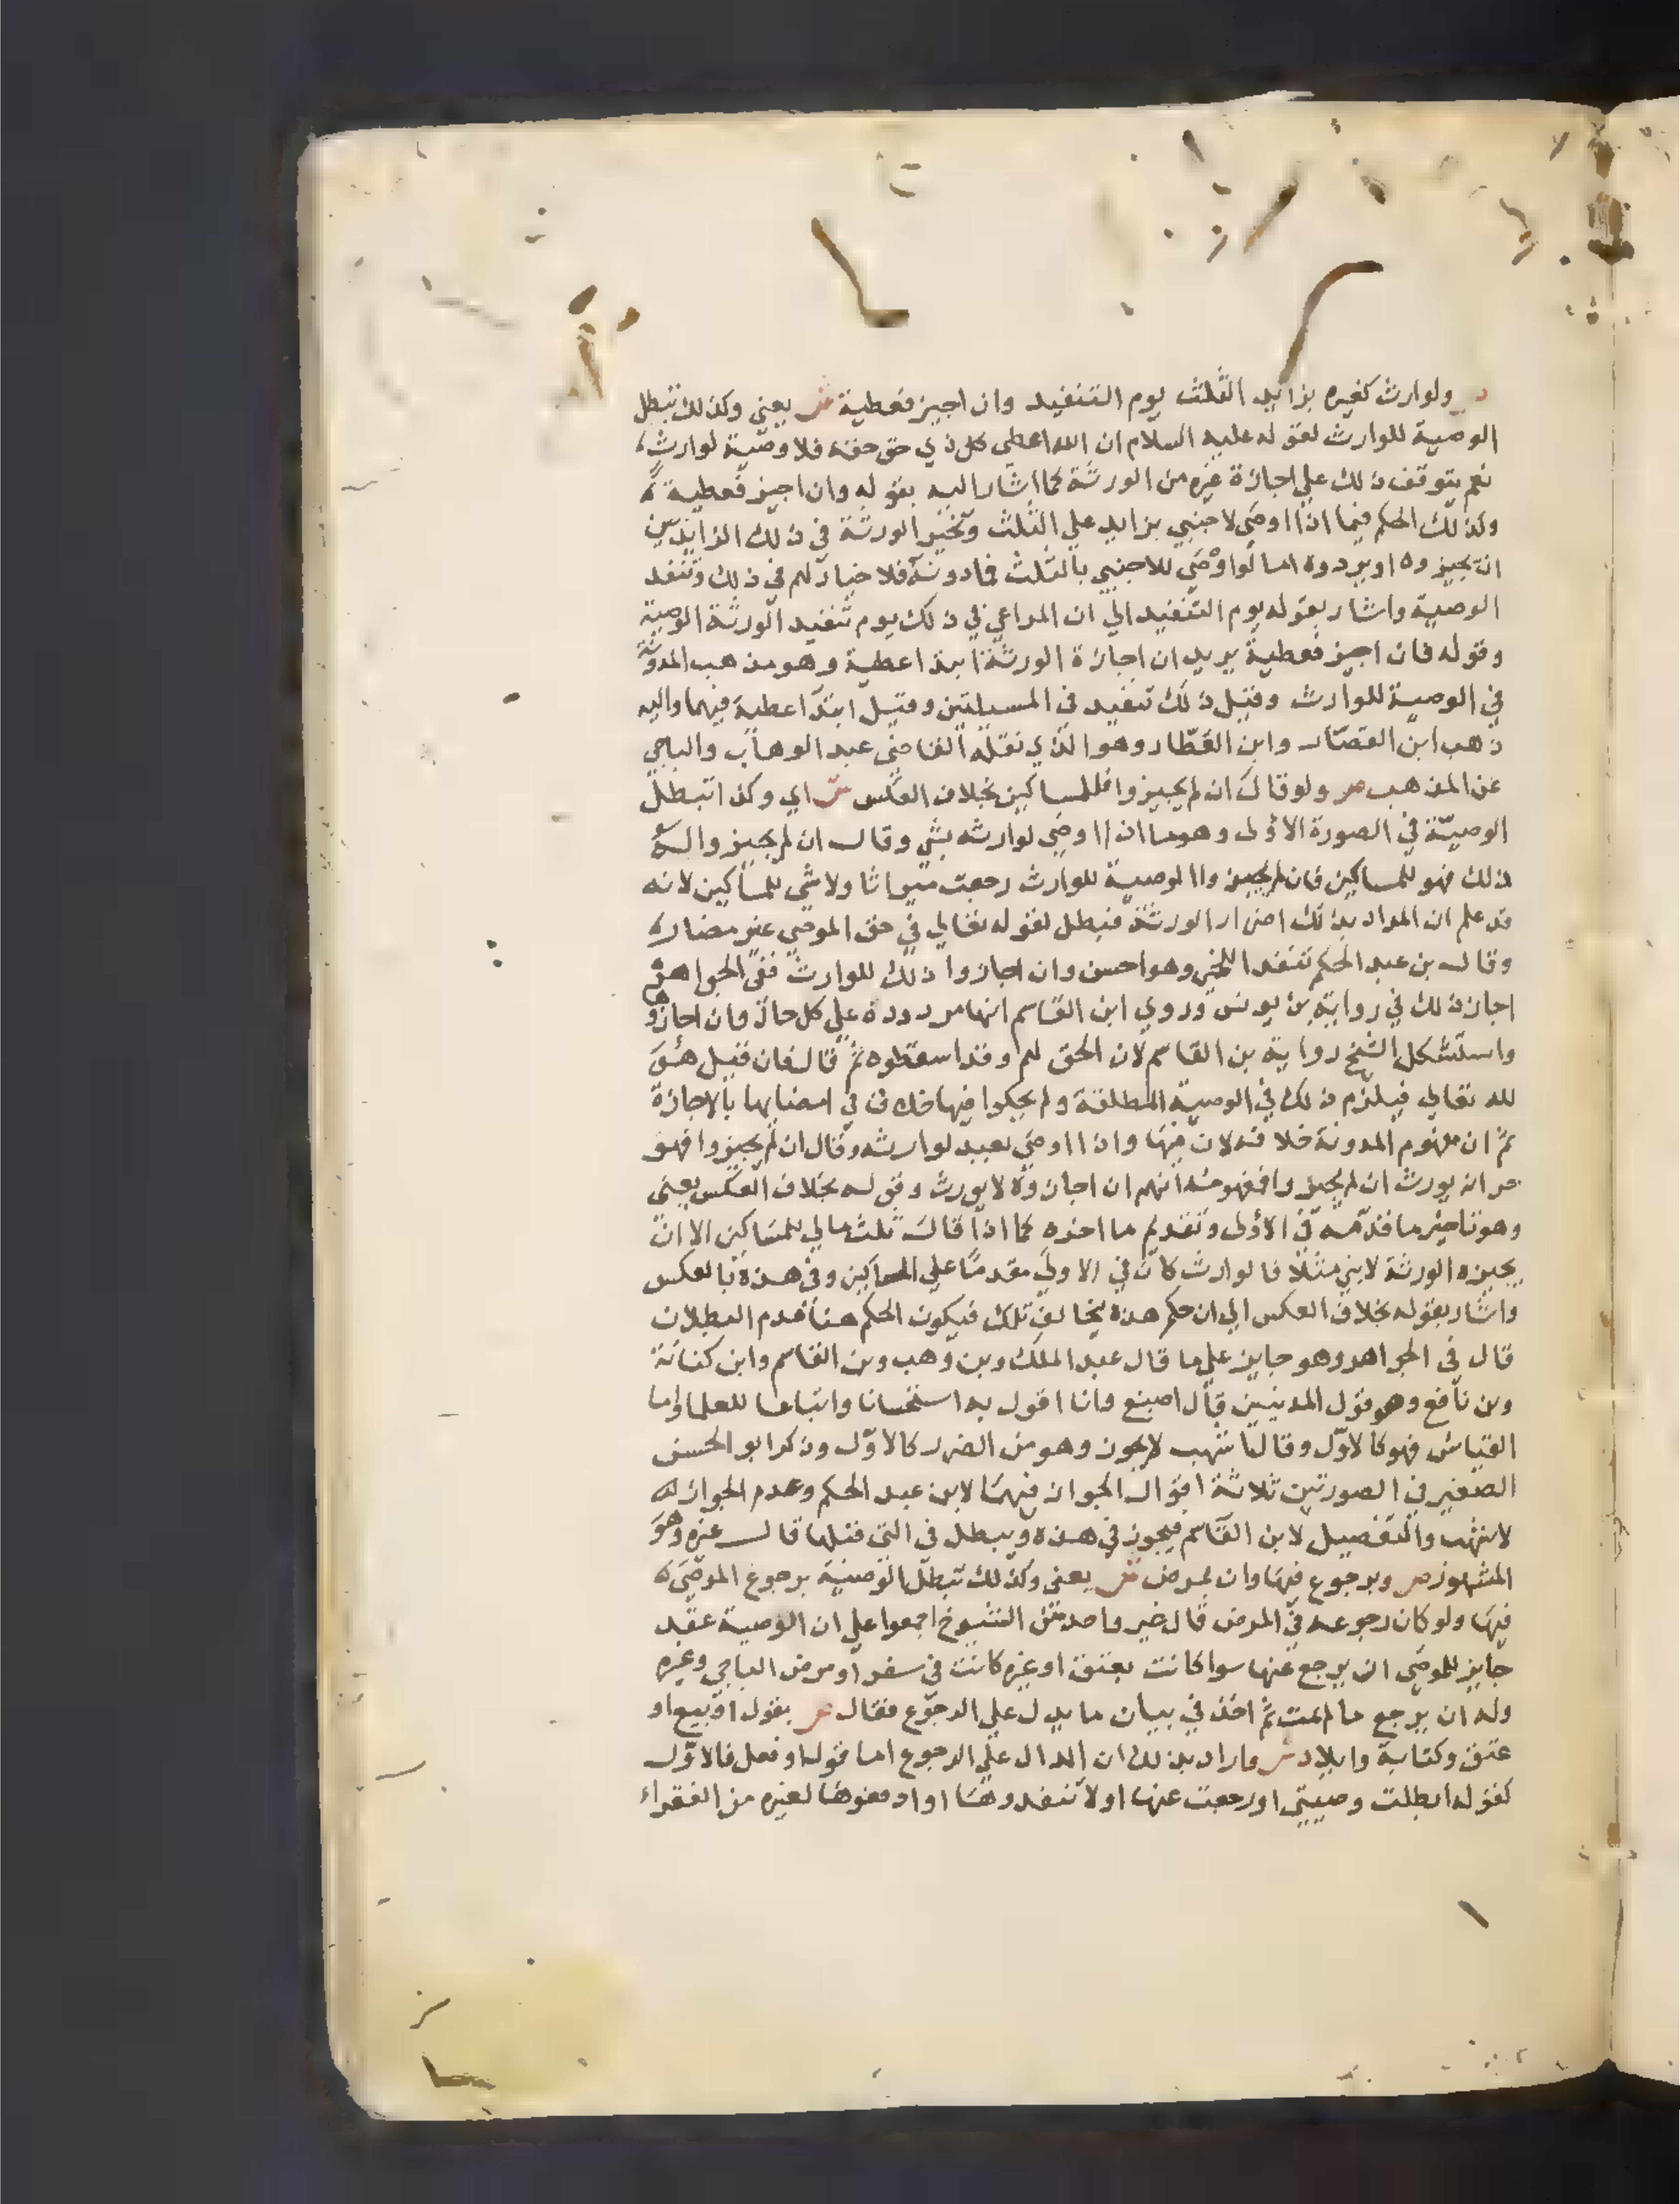 ص ولوارث كغيره بزايد الثلث يوم التنفيد وان اجيز فعطية ش يعني وكذلك تبطل
الوصية للوارث لقوله عليه السلام ان الله اعطى كل ذي حق حقه فلا وصية لوارث
نعم يتوقف ذلك علي اجازة غيره من الورثة كما اشار اليه بقوله وان اجيز فعطية
وكذلك الحكم فيما اذا اوصي لاجنبي بزايد علي الثلث وتخير الورثة في ذلك الزايد بين
ان يجيزوه او يردوه اما لو اوصي للاجنبي بالثلث فما دونه فلا خيار لهم في ذلك وتنفد
الوصية واشار بقوله يوم التنفيد الي ان المراعي في ذلك يوم تنفيد الورثة الوصية
وقوله فان اجيز فعطية يريد ان اجازة الورثة ابتدا عطية وهو مذهب المدونة
في الوصية للوارث وقيل ذلك تنفيد في المسيلتين وقيل ابتدا عطية فيهما واليه
ذهب ابن القصار وابن العطار وهو الذي نقله القاضي عبد الوهاب والباجي
عن المذهب ص ولو قال ان لم يجيزوا فللمساكين بخلاف العكس ش اي وكذا تبطل
الوصية في الصورة الاولى وهو ما اذا اوصي لوارثه بشي وقال ان لم يجيزوا له
ذلك فهو للمساكين فان لم يجيزوا الوصية للوارث رجعت ميراثا ولا شي للمساكين لانه
قد علم ان المراد بذلك اضرار الورثة فيبطل لقوله تعالي في حق الموصي غير مضار
وقال بن عبد الحكم تنفد اللخمي وهو احسن وان اجازوا ذلك للوارث ففي الجواهر
اجاز ذلك في رواية بن يونس وروي ابن القاسم انها مردودة علي كل حال وان اجازوها
واستشكل الشيخ رواية بن القاسم لان الحق لهم وقد اسقطوه ثم قال فان قيل هو
لله تعالي فيلزم ذلك في الوصية المطلقة ولم يحكوا فيها خلاف في امضايها بالاجازة
ثم ان مفهوم المدونة خلافه لان فيها واذا اوصي بعبد لوارثه وقال ان لم يجيزوا فهو
حر انه يورث ان لم يجيزوا فمفهومه انهم ان اجازوه لا يورث وقوله بخلاف العكس يعني
وهو تاخير ما قدمه في الاولى وتقديم ما اخره كما اذا قال ثلث مالي للمساكين الا ان
يجيزه الورثة لابني مثلا فالوارث كان في الاولي مقدما علي المساكين وفي هذه بالعكس
واشار بقوله بخلاف العكس الي ان حكم هذه يخالف تلك فيكون الحكم هنا عدم البطلان
قال في الجواهر وهو جايز علي ما قال عبد الملك وبن وهب وبن القاسم وابن كنانة
وبن نافع وهو قول المدنيين قال اصبغ وانا اقول به استحسانا واتباعا للعلما واما
القياس فهو كالاول وقال اشهب لا يجوز وهو من الضرر كالاول وذكر ابو الحسن
الصغير في الصورتين ثلاثة اقوال الجواز فيهما لابن عبد الحكم وعدم الجواز
لاشهب والتفصيل لابن القاسم فيجوز في هذه ويبطل في التي قبلها قال غيره وهو
المشهور ص وبرجوع فيها وان بمرض ش يعني وكذلك تبطل الوصية برجوع الموصي
فيها ولو كان رجوعه في المرض قال غير واحد من الشيوخ اجمعوا علي ان الوصية عقد
جايز للموصي ان يرجع عنها سوا كانت بعتق او غيره كانت في سفر او مرض الباجي وغيره
وله ان يرجع ما لم يمت ثم اخذ في بيان ما يدل علي الرجوع فقال ص بقول او بيع او
عتق وكتابة وايلاد ش واراد بذلك ان الدال علي الرجوع اما قول او فعل فالاول
كقوله ابطلت وصيتي او رجعت عنها او لا تنفدوها او ادفعوها لغيره من الفقراء